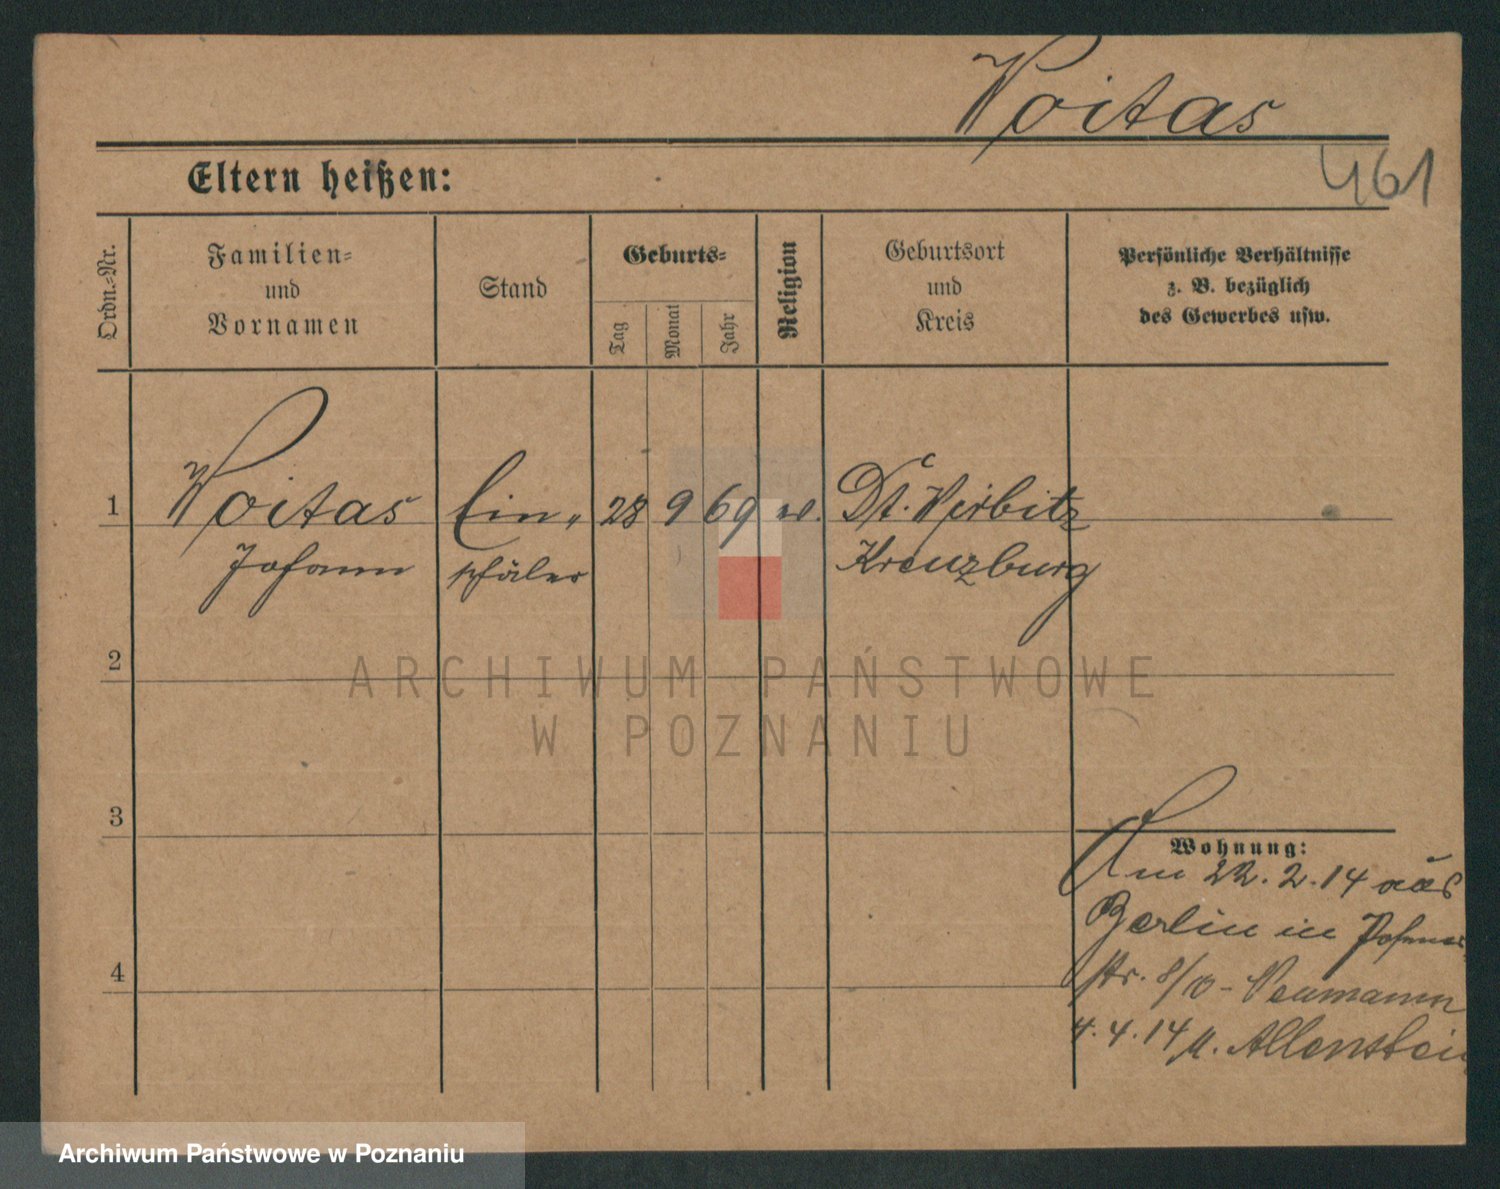 Woitas
461
Eltern heißen:
Ordn.-Nr.
Familien-
und
Vornamen
Stand
Geburts-
Tag
Monat
Jahr
Religion
Geburtsort
und
Kreis
Persönliche Verhältnisse
z. B. bezüglich
des Gewerbes usw.
1
Woitas
Johann
Ein-
schäler
28
9
69
Dt. Wirbitz
Kreuzburg
2
3
4
Wohnung:
Am 22.2.14 aus
Berlin in
str. 8/ - Neumann
4.4.14 n. Allenstein
ARCHIWUM PAŃSTWOWE
W POZNANIU
Archiwum Państwowe w Poznaniu